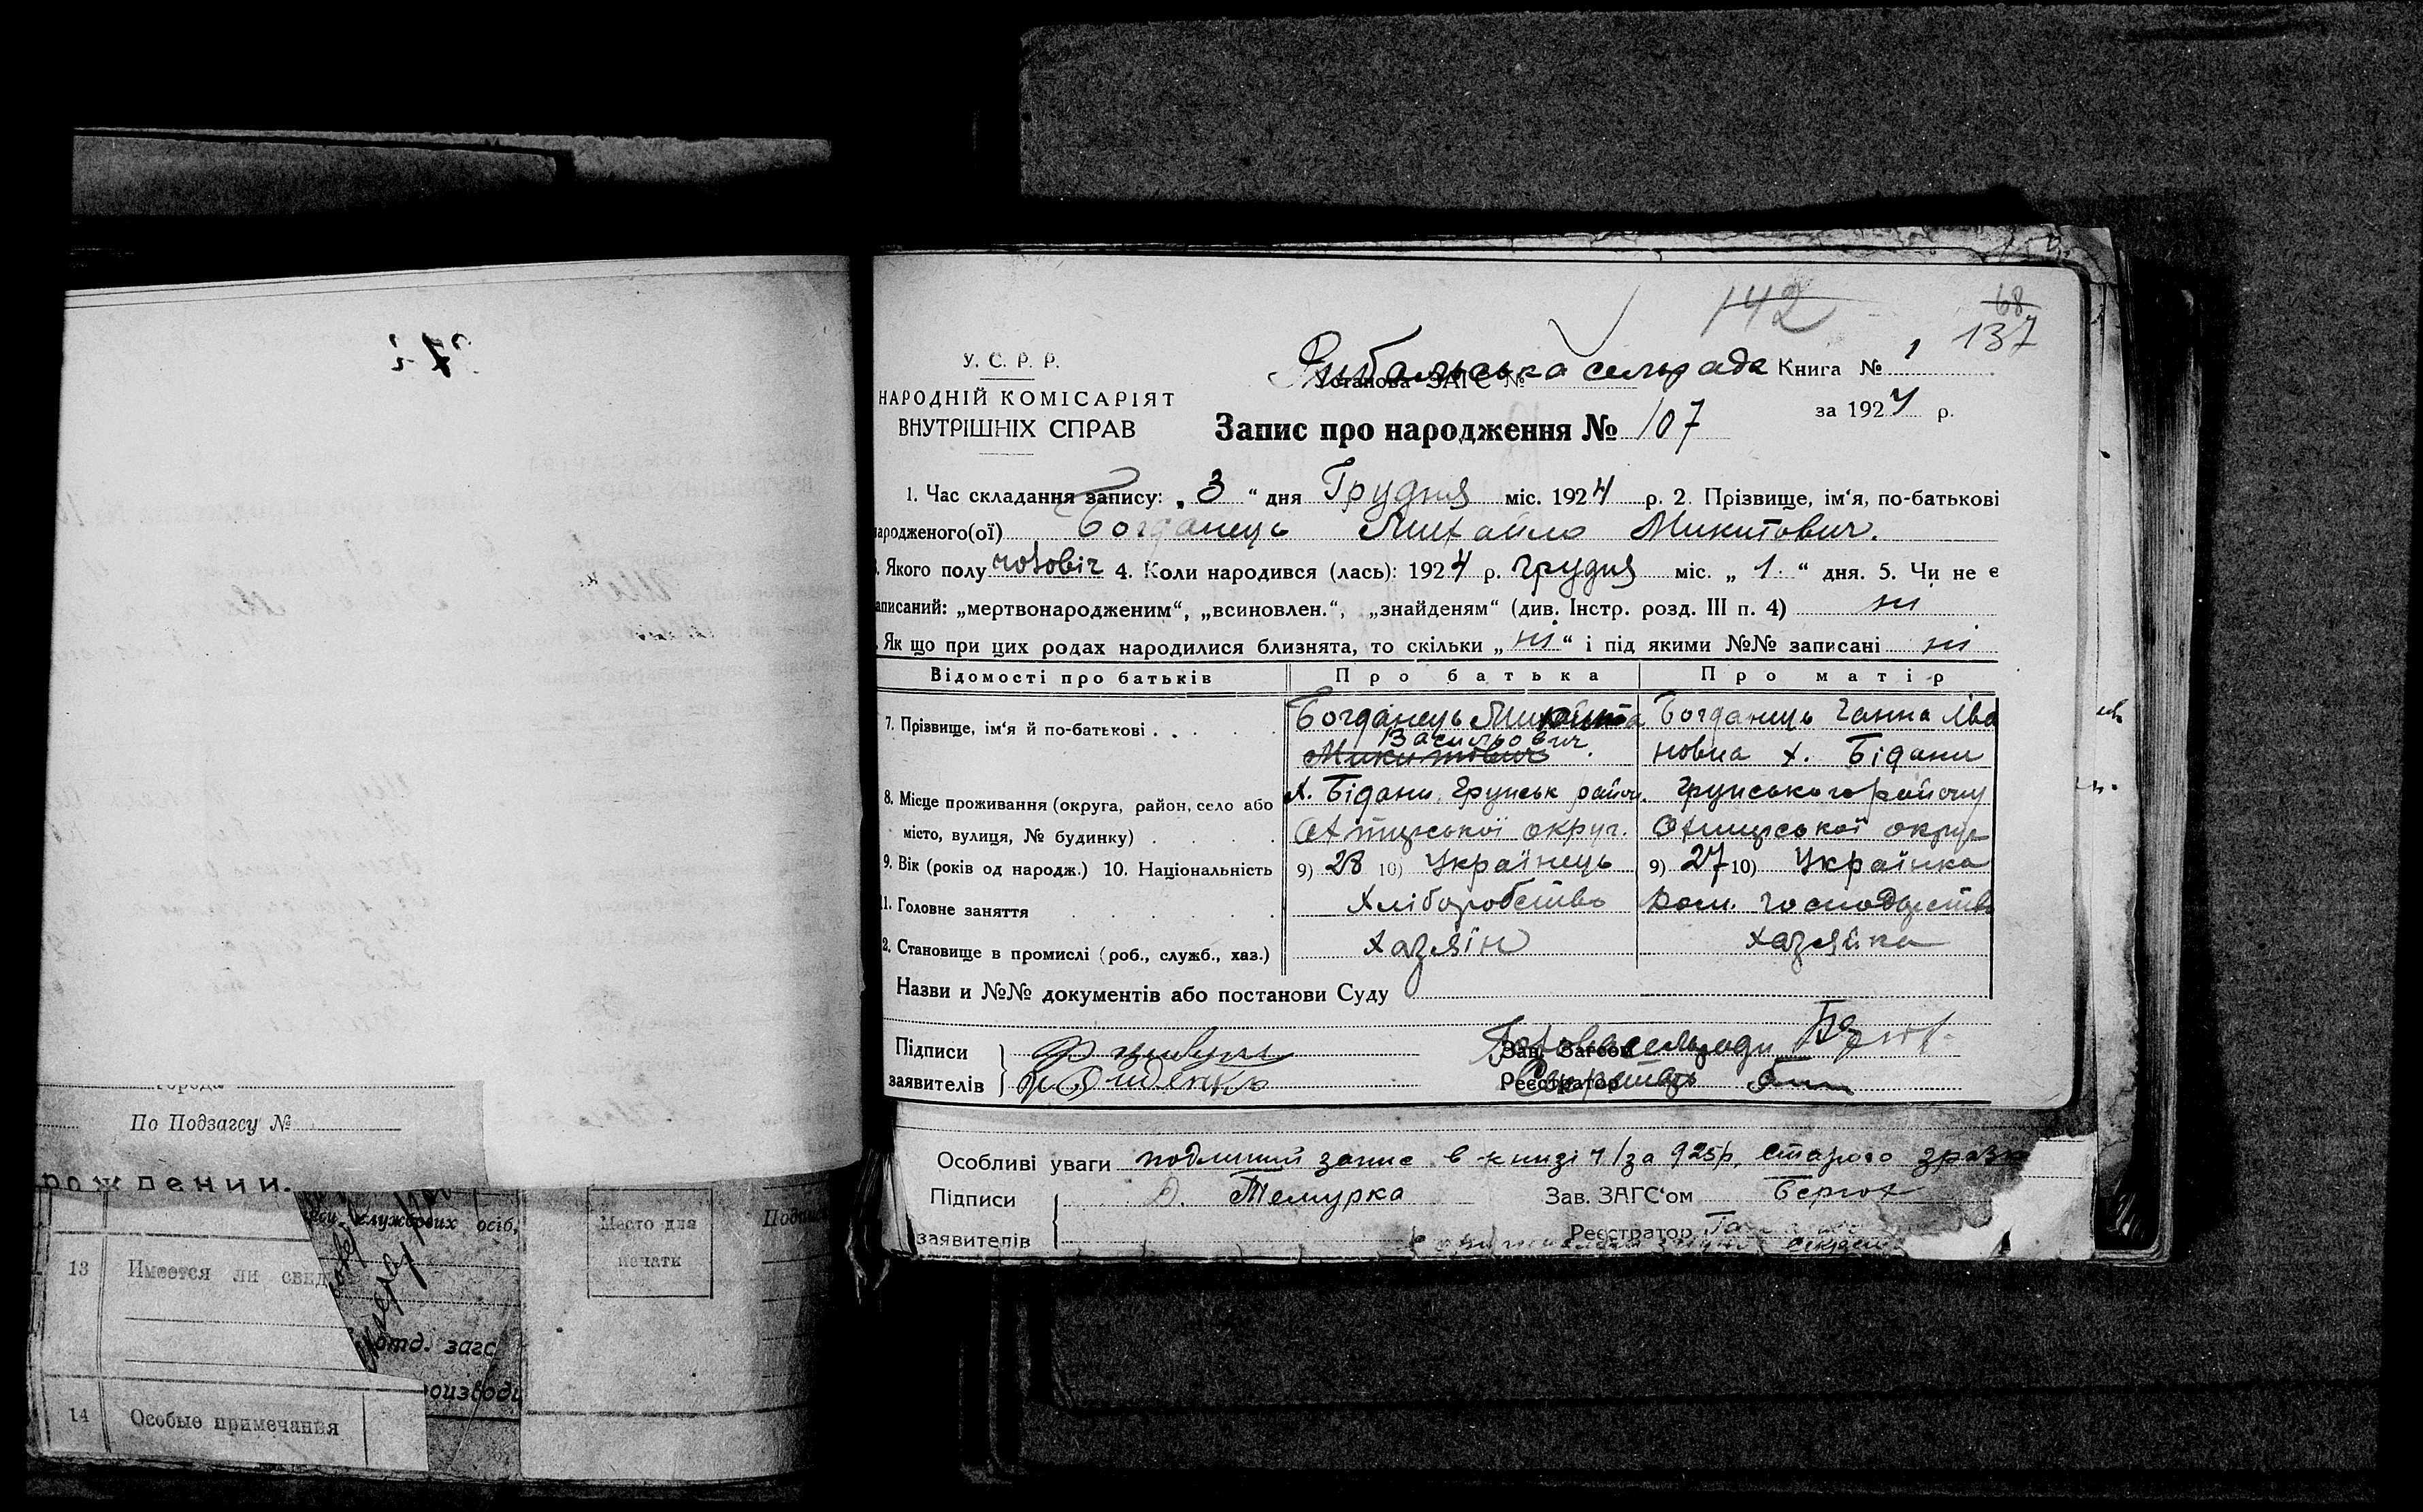 По Подзагсу №
рождении.
службових осіб,
13 Имеется ли свид
отд. загс
14 Особые примечания
Место для
печати
142
68
137
У. С. Р. Р.
НАРОДНІЙ КОМІСАРІЯТ
ВНУТРІШНІХ СПРАВ
Установа ЗАГС № Рибальська сельрада Книга № 1
за 1924 р.
Запис про народження № 107
1. Час складання запису: „3“ дня Грудня міс. 1924 р. 2. Прізвище, ім‘я, по-батькові
народженого(ої) Богданець Михайло Микитович.
3. Якого полу чоловіч 4. Коли народився (лась): 1924 р. грудня міс. „1“ дня. 5. Чи не є
записаний: „мертвонародженим“, „всиновлен.“, „знайденям“ (див. Інстр. розд. III п. 4) ні
Як що при цих родах народилися близнята, то скільки „ні“ і під якими №№ записані ні
Відомості про батьків Про батька Про матір
7. Прізвище, ім‘я й по-батькові Богданець Микита Богданець Ганна Іва
Васильович
Микитович новна х. Бідани
8. Місце проживання (округа, район, село або х. Бідани, Грунськ район. Грунського району
місто, вулиця, № будинку) Охтирської округ. Охтирської округ
9. Вік (років од народж.) 10. Національність 9) 28 10) Українець 9) 27 10) Українка
11. Головне заняття Хліборобство Дом. господарство
12. Становище в промислі (роб., служб., хаз.) хазяїн хазяйка
Назви и №№ документів або постанови Суду
Підписи Зав. Загсом Голова сельради
заявителів Реєстратор Секретарь
Особливі уваги подлиний запис в книзі 1/за 925 р. старого зразк
Підписи Темурка Зав. ЗАГС‘ом
заявителів Реєстратор